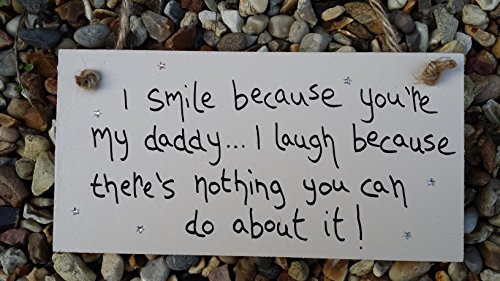 I smile because you're
my daddy... I laugh because
there's nothing you can
do about it!